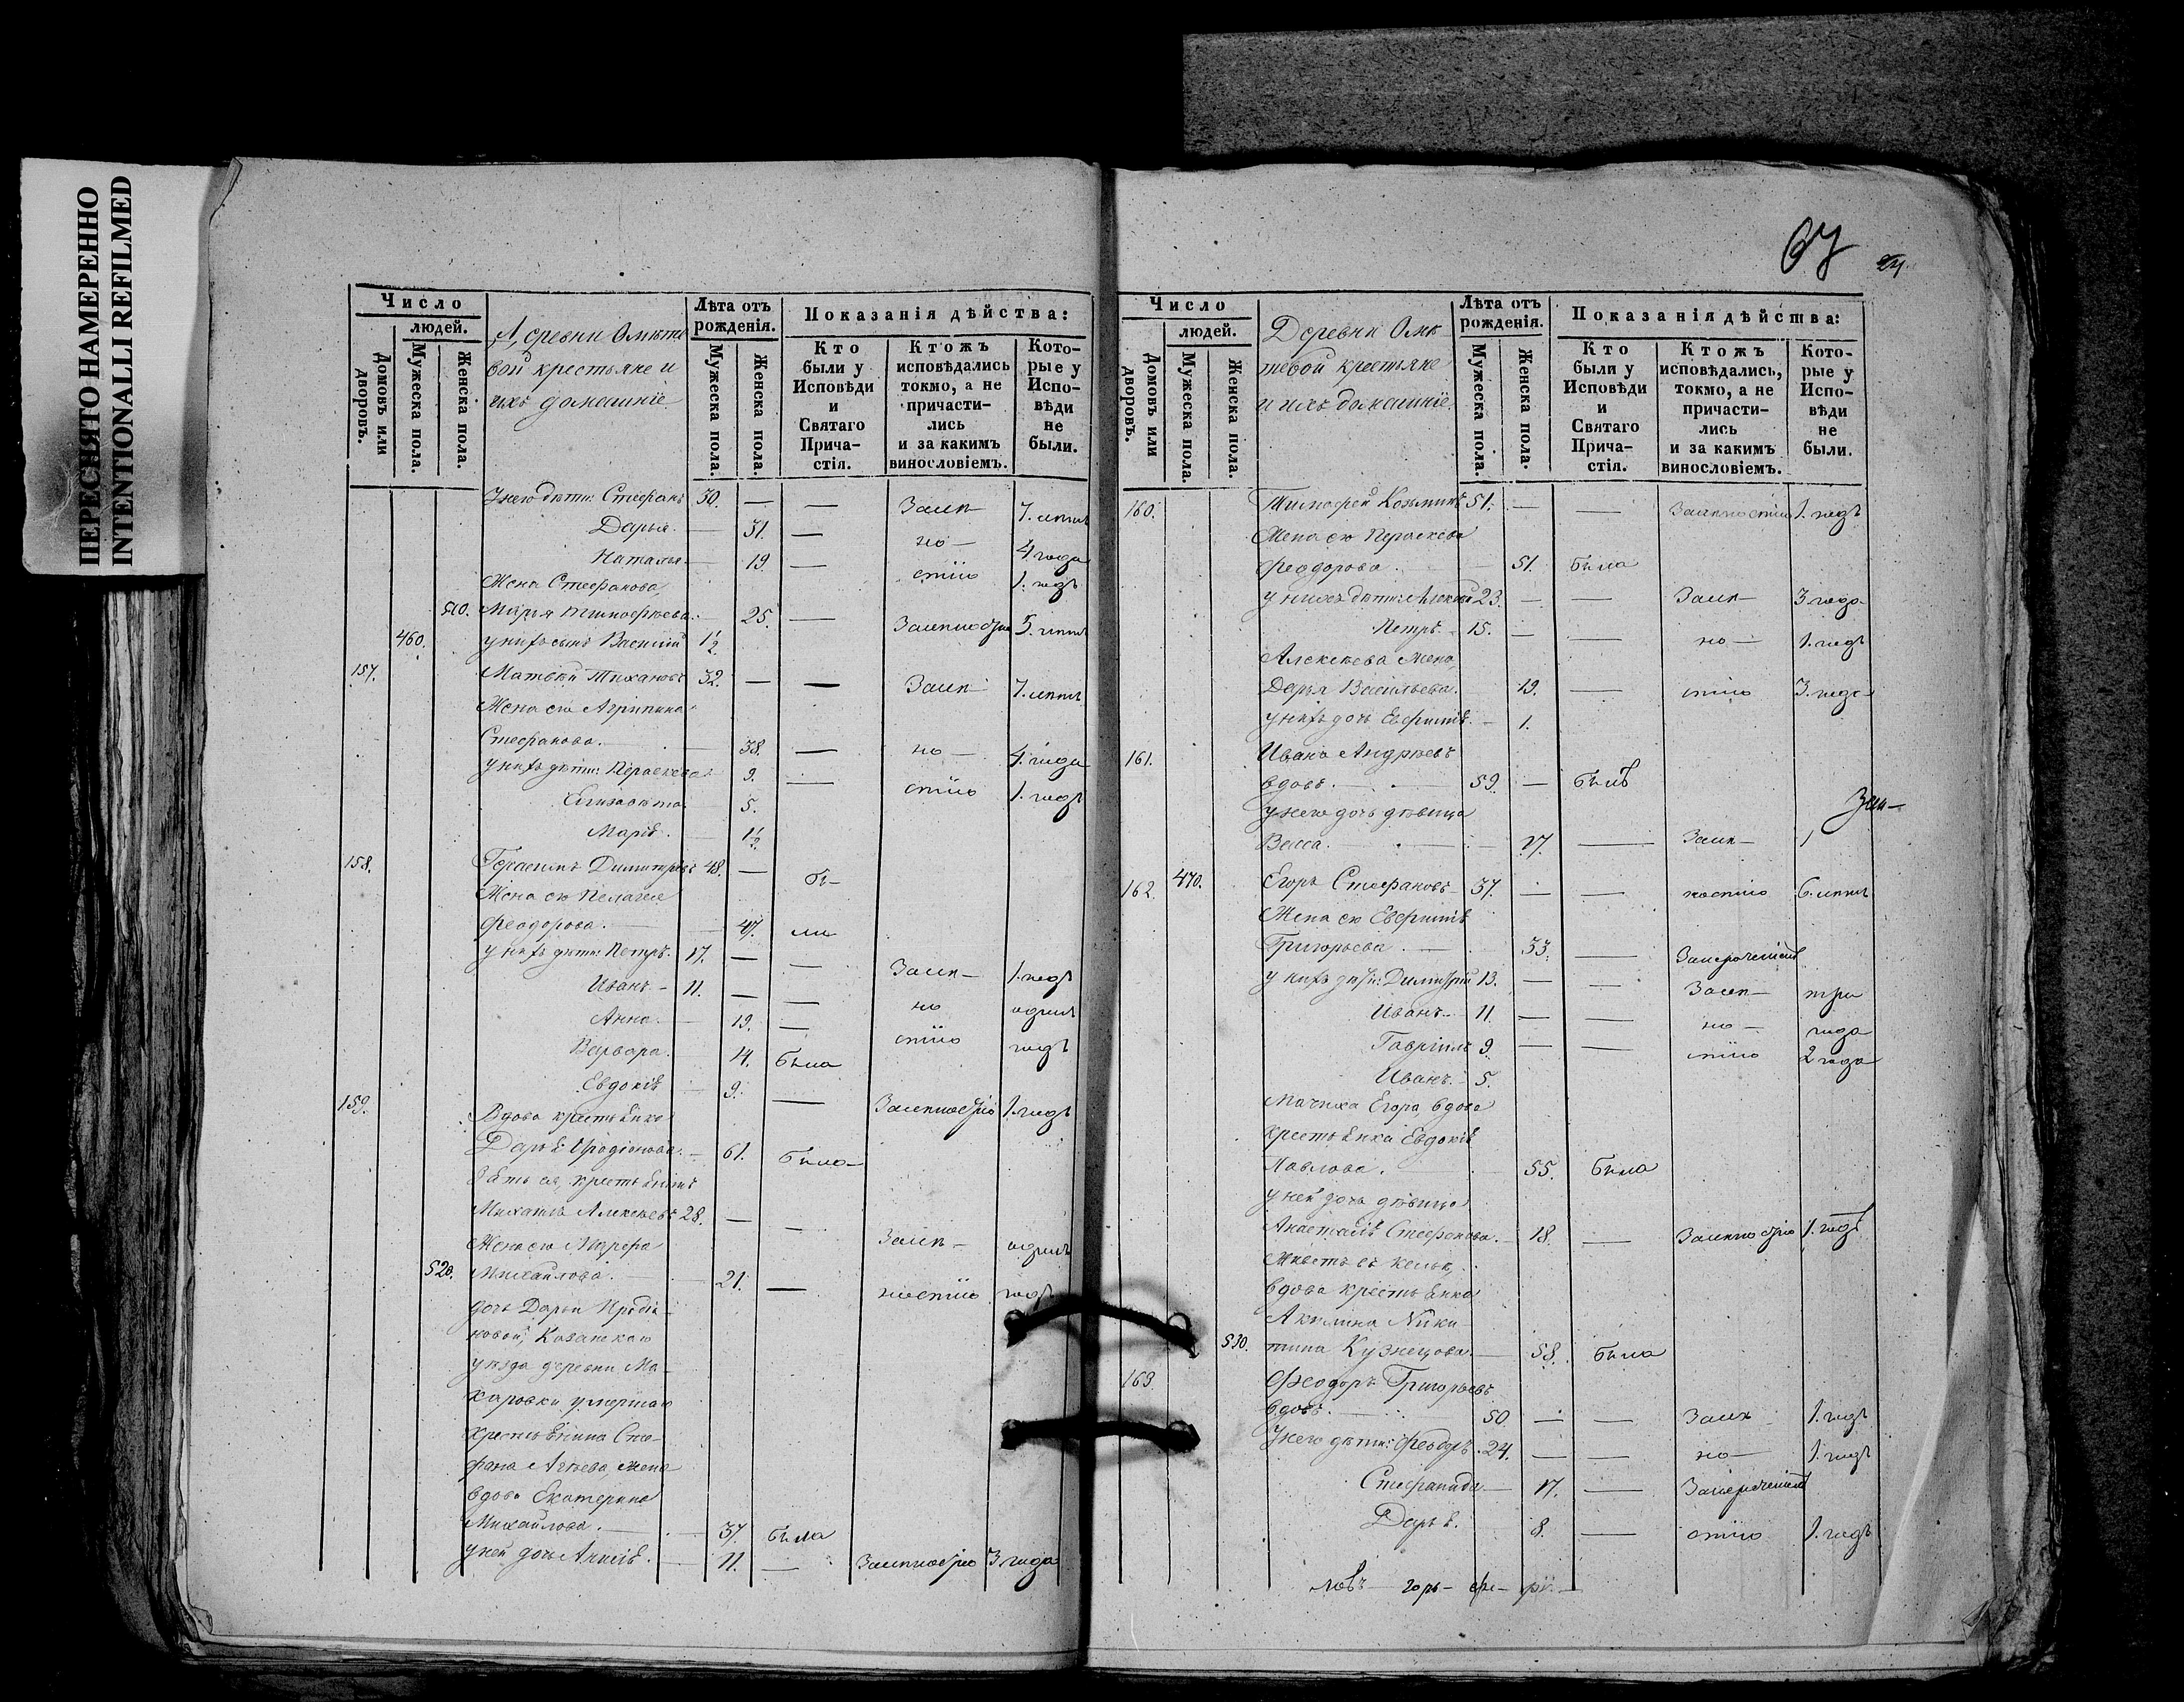 ПЕРЕСНЯТО НАМЕРЕННО
INTENTIONALLI REFILMED
67
Число
людей.
Домовъ или дворовъ.
Мужеска пола.
Женска пола.
Деревни Омѣте
вой крестьяне и
ихъ домашніе
Лѣта отъ рожденія.
Мужеска пола.
Женска пола.
Показанія дѣйства:
Кто были у Исповѣди и Святаго Прича- стія.
Ктожъ исповѣдались токмо, а не причасти- лись и за какимъ винословіемъ.
Кото- рые у Испо- вѣди не были.
У него дѣти: Стефанъ 30. — — Заин- 7. лѣтъ
Дарья. — 31. — но- 4 года
Наталья. — 19. — стію 1. годъ
Жена Стефанова,
510. Марья Тимофѣева. 25. — 5. лѣтъ
460. у нихъ сынъ Василій 1½
157. Матвѣй Тихановъ 32. — — 7. лѣтъ
Жена его Агрипина
Стефанова. — 38. — но- 4. года
у нихъ дѣти: Параскева 9. — стію 1. годъ
Елизавета 5.
Марія. 1½
158. Герасимъ Димитріевъ 48. — бы-
Жена его Пелагея
Феодорова. 47. ли
у нихъ дѣти: Петръ. 17. — — 1. годъ
Иванъ. — 11. — — но одинъ
Анна. 19. — стію годъ
Варвара. 14. была
Евдокія 9. — 1. годъ
159. Вдова крестьянка
Дарья Иродіонова. — 61. была
Зять ея, крестьянинъ
Михаилъ Алексѣевъ 28. — — одинъ
Жена его Марфа
520. Михайлова. 21. — ностію годъ
дочь Дарьи Иродіо-
новой, Казанскаго
уѣзда деревни Ма-
каровки умершаго
крестьянина Сте-
фана Агѣева жена
вдова Екатерина
Михайлова. 37. была
у ней дочь Анисія. 11. — 3 года
Число
людей.
Домовъ или дворовъ.
Мужеска пола.
Женска пола.
Деревни Омѣ
тевой крестьяне
и ихъ домашніе
Лѣта отъ рожденія.
Мужеска пола.
Женска пола.
Показанія дѣйства:
Кто были у Исповѣди и Святаго Прича- стія.
Ктожъ исповѣдались, токмо, а не причасти- лись и за какимъ винословіемъ.
Кото- рые у Испо- вѣди не были.
160. Тимофей Козьминъ 51. — — 1. годъ
Жена его Параскева
Феодорова. 51. была
у нихъ дѣти: Алексѣй 23. — — 3 года
Петръ. 15. — — но- 1. годъ
Алексѣева жена,
Дарья Васильева. 19. — стію 3. года
у нихъ дочь Евфимія. — 1.
161. Иванъ Андрѣевъ
вдовъ. 59. — былъ
у него дочь дѣвица
Васса. 27. — 1
162. 470. Егоръ Стефановъ 37. — — ностію 6. лѣтъ
Жена его Евфимія
Григорьева. 33. —
у нихъ дѣти: Димитрій 13. — — три
Иванъ. 11. — — но- года
Гавріилъ 9. — — стію 2 года
Иванъ. 5.
Мачиха Егора, вдова
крестьянка Евдокія
Павлова. 55. была
у ней дочь дѣвица
Анастасія Стефанова. 18. — 1. годъ
Живетъ въ кельѣ,
вдова крестьянка
Акилина Ники-
530. тина Кузнецова. — 58. была
163. Феодоръ Григорьевъ
вдовъ. 50 — — 1. годъ
У него дѣти: Феодоръ. 24. — — но- 1. годъ
Стефанида 17. —
Дарья. 8. — стію 1. годъ